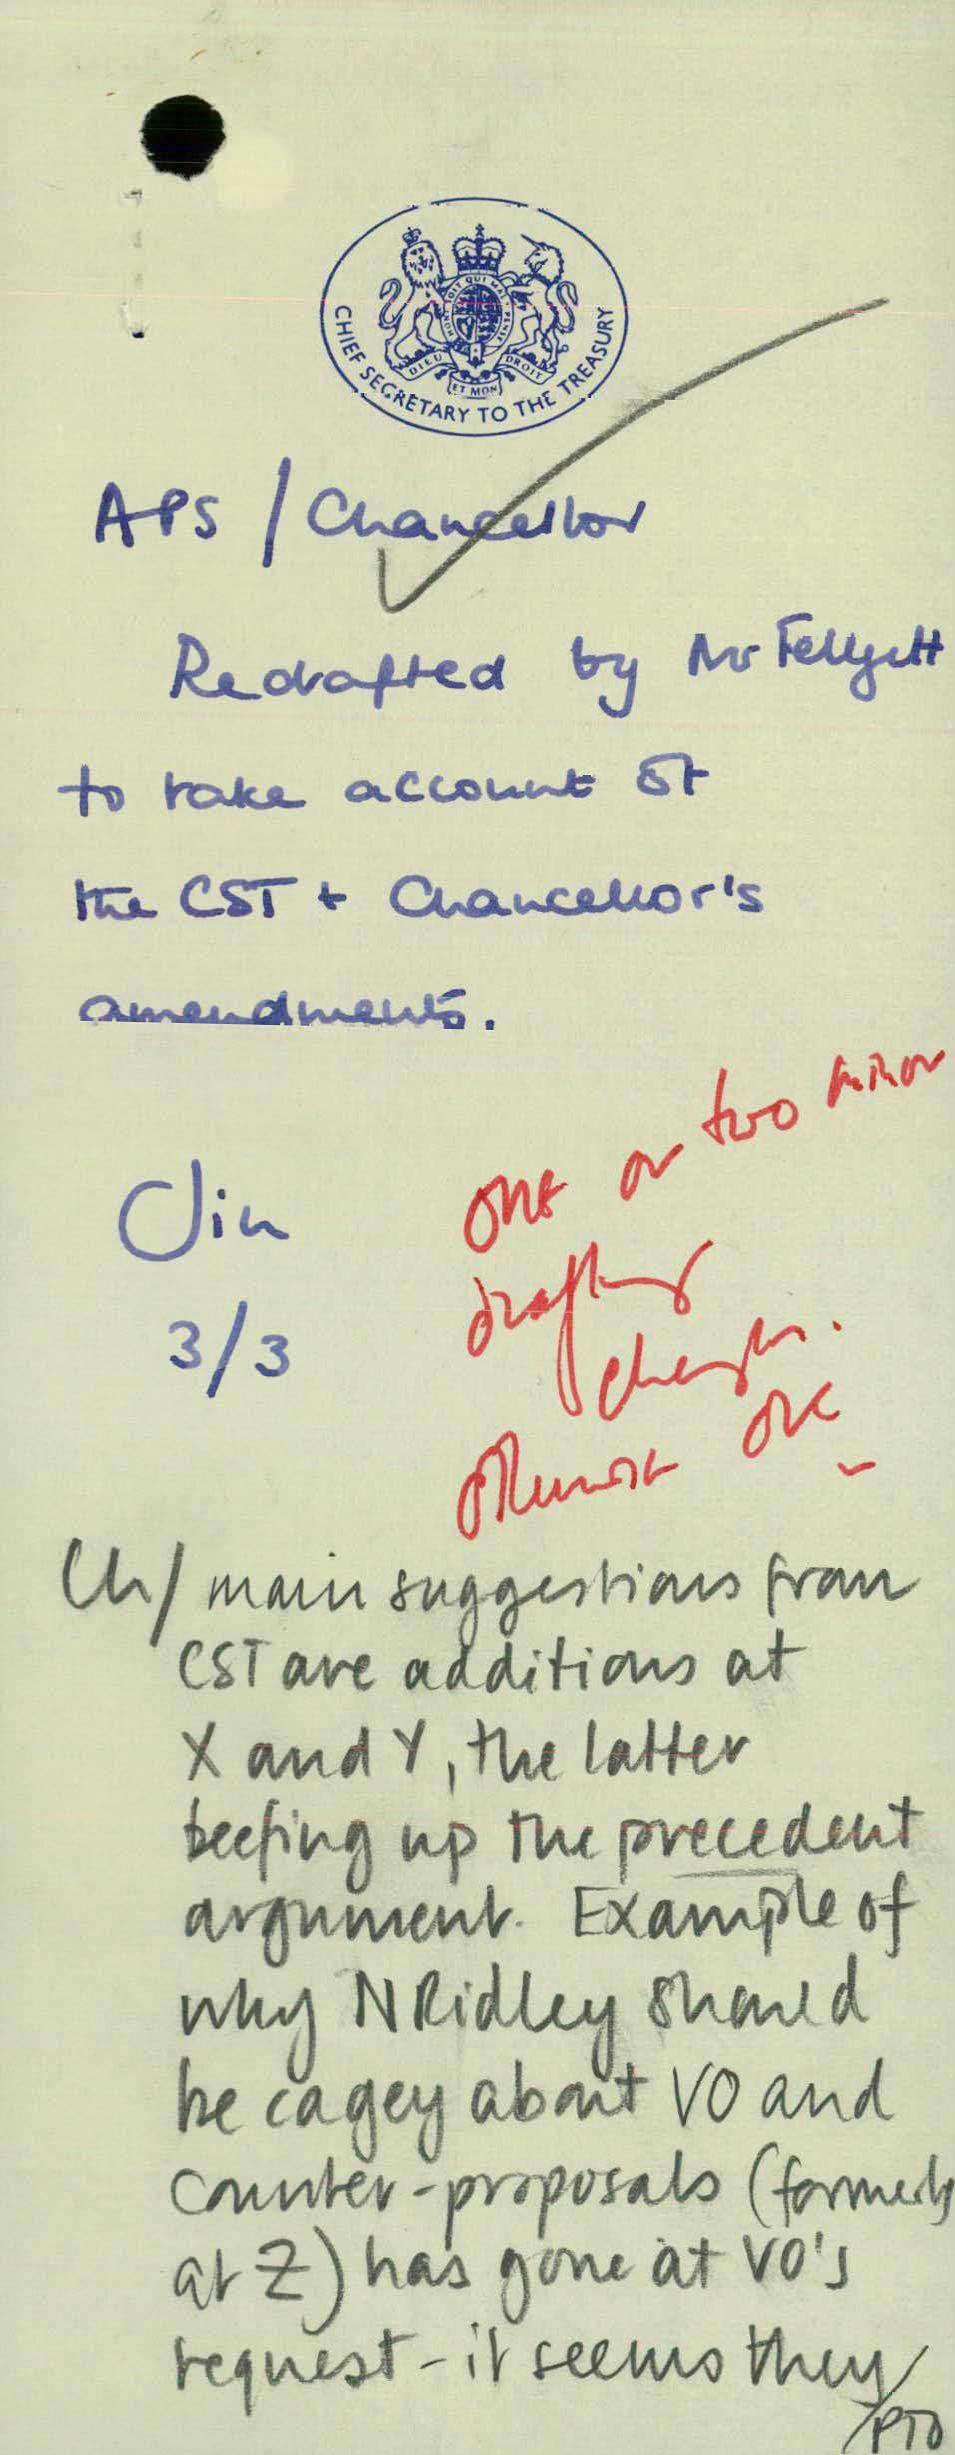 CHIEF SECRETARY TO THE TREASURY
DIEU
ET MON
DROIT
APS / Chancellor
Redrafted by Mr Fellgett
to take account of
the CST + Chancellor's
amendments.
Jin
3/3
one or two minor
drafting
changes.
otherwise OK
Ch/ main suggestions from
CST are additions at
X and Y, the latter
beefing up the precedent
argument. Example of
why N Ridley should
be cagey about VO and
counter-proposals (formerly
at Z) has gone at VO's
request - it seems they
/PTO